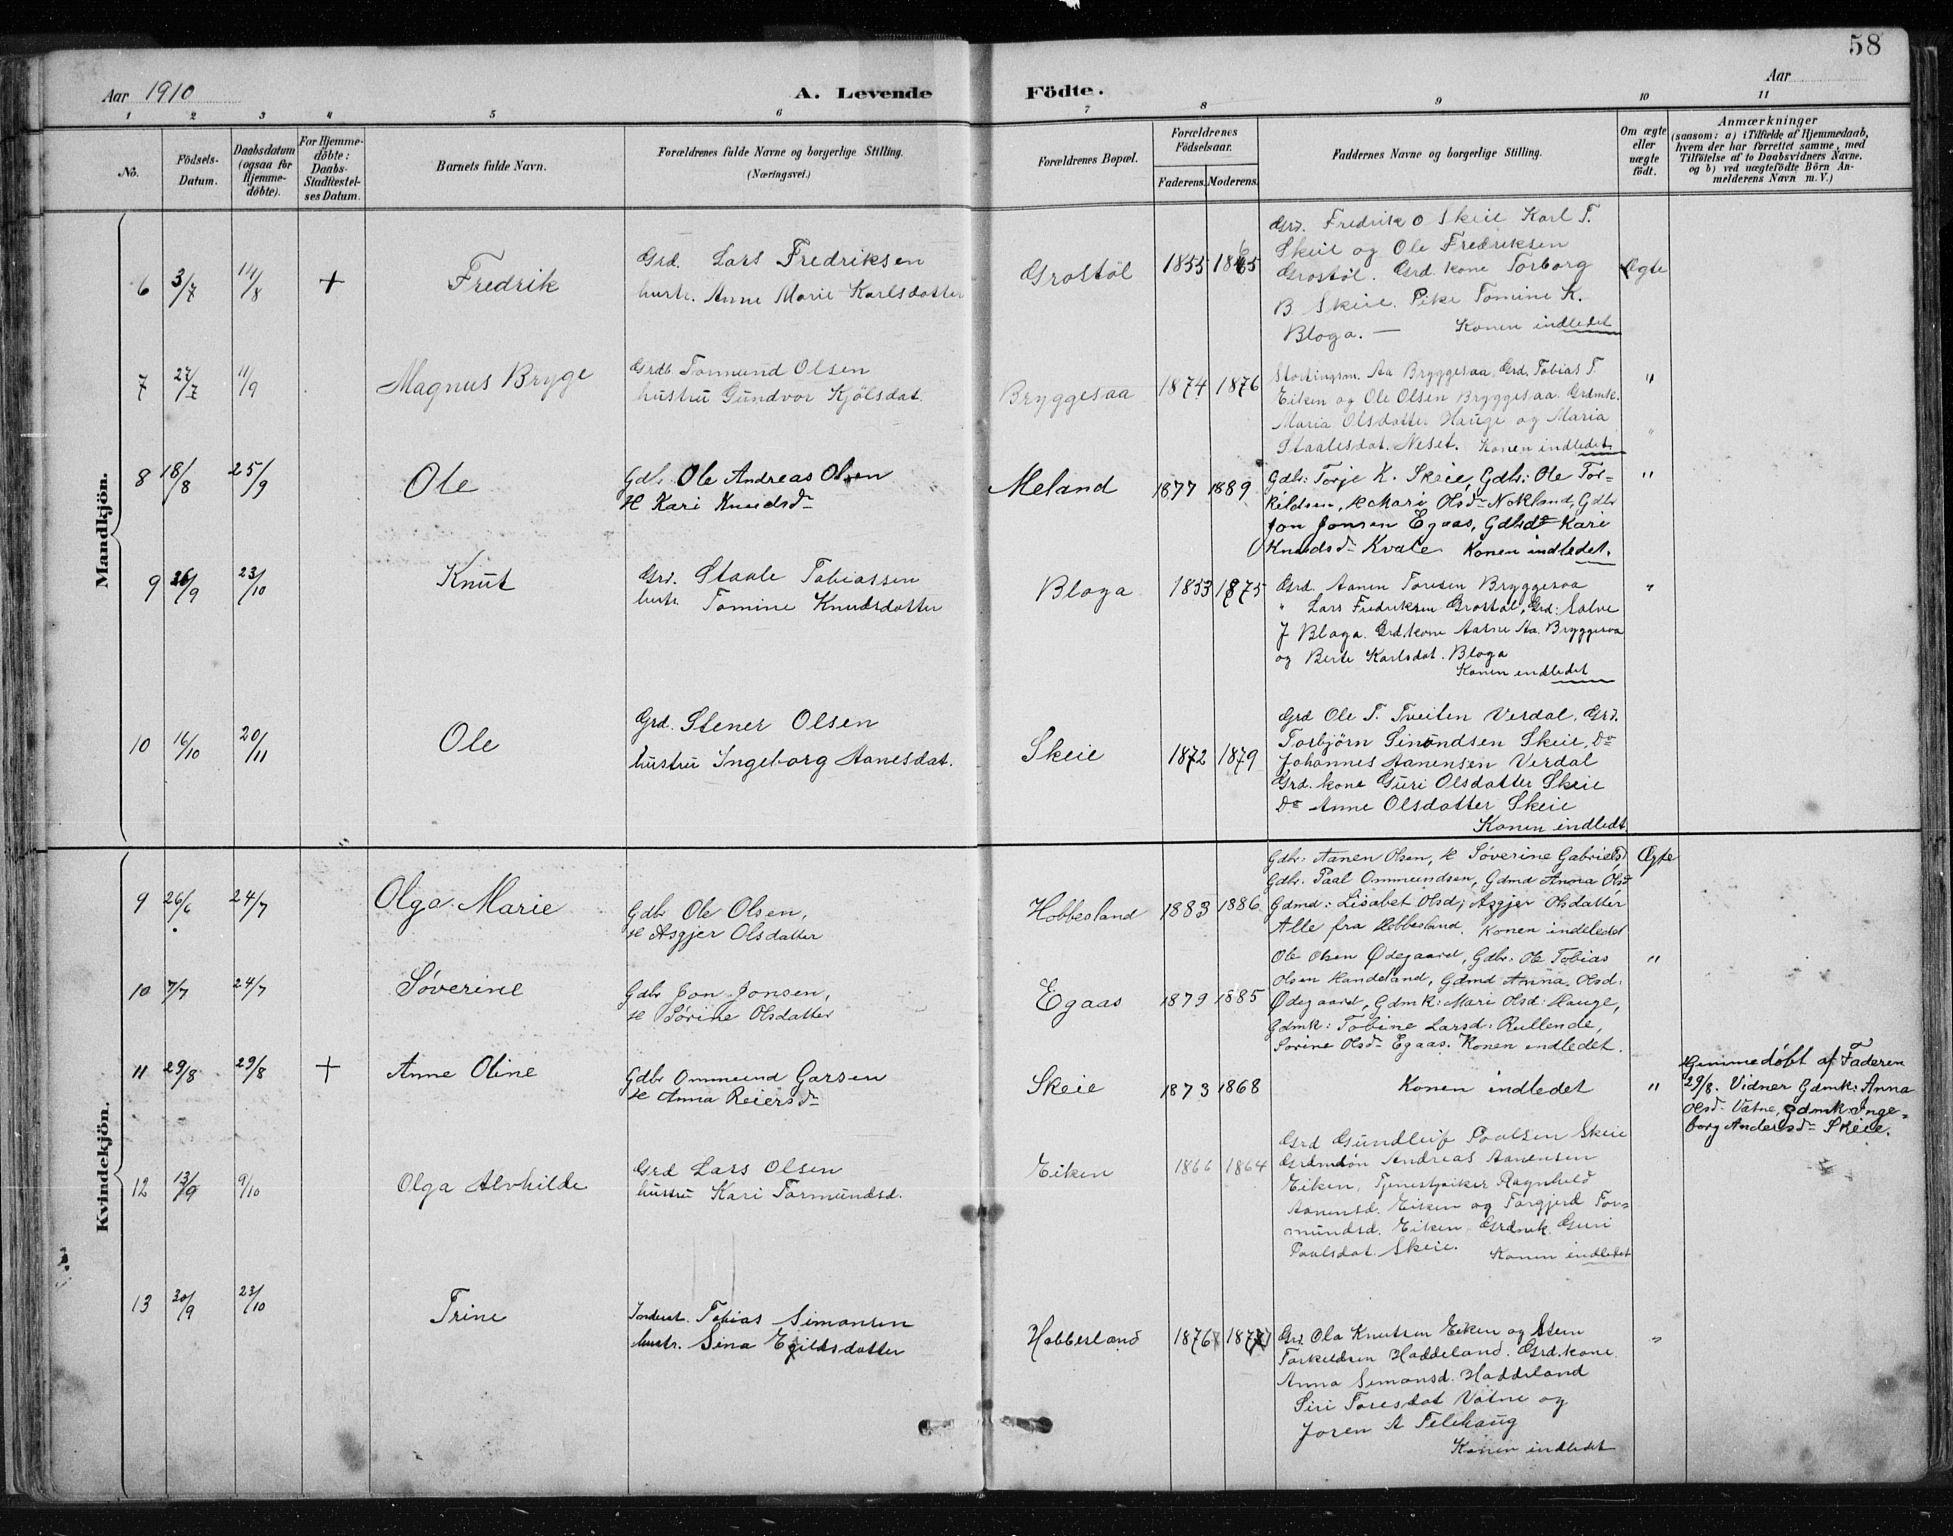 58
Aar 1910
A. Levende Födte.
Aar
1 2 3 4 5 6 7 8 9 10 11
No.
Födsels-
Datum.
Daabsdatum
(ogsaa for
Hjemme-
döbte).
For Hjemme-
döbte:
Daabs-
Stadfæstel-
ses Datum.
Barnets fulde Navn.
Forældrenes fulde Navne og borgerlige Stilling.
(Næringsvei.)
Forældrenes Bopæl.
Forældrenes
Födselsaar.
Faderens. Moderens.
Faddernes Navne og borgerlige Stilling.
Om ægte
eller
uægte
födt.
Anmærkninger
(saasom: a) i Tilfælde af Hjemmedaab,
hvem der har forrettet samme, med
Tilföielse af to Daabsvidners Navne,
og b) ved uægtefödte Börn An-
melderens Navn m. V.)
Mandkjön.
6 3/7 14/8 + Fredrik
Grd. Lars Fredriksen
hustr. Anne Marie Karlsdatter
Grostöl 1855 1865
Grd. Fredrik O Skeie Karl T.
Skeie og Ole Fredriksen
Grostöl. Grd. kone Torborg
B Skeie. Pike Tomine K.
Bloga. — Konen indledet
Ægte
7 27/7 11/9 Magnus Bryge
Grdb. Tormund Olsen
hustru Gundvor Kjölsdat.
Bryggesaa 1874 1876
Stortingsm. Aa Bryggesaa, Grd. Tobias T.
Eiken og Ole Olsen Bryggesaa. Grdmk.
Maria Olsdatter Hauge og Maria
Staalesdat. Neset. Konen indledet
"
8 18/8 25/9 Ole
Gdbr. Ole Andreas Olsen
H Kari Knudsdr
Meland 1877 1889
Gdbr: Torje K. Skeie, Gdbr: Ole Tor=
kildsen, H Mari Olsdr Nokland, Gdbr
Jon Jonsen Egaas, Gdbsdr Kari
Knudsdr Kvale Konen indledet.
"
9 26/9 23/10 Knut
Grd. Staale Tobiassen
hustr. Tomine Knudsdatter
Bloga 1853 1875
Grd. Aanen Toresen Bryggesaa
" Lars Fredriksen Grostöl, Grd: Salve
J Bloga. Grd.kone Aasne Aa. Bryggesaa
og Berte Karlsdat. Bloga
Konen indledet
"
10 16/10 20/11 Ole
Grd. Stener Olsen
hustru Ingeborg Aanesdat.
Skeie 1872 1879
Grd Ole T. Tveiten Verdal, Grd.
Torbjörn Simundsen Skeie, Do
Johannes Aanensen Verdal
Grd. kone Guri Olsdatter Skeie
Do Anne Olsdatter Skeie
Konen indledt
Kvindekjön.
9 26/6 24/7 Olga Marie
Gdbr Ole Olsen,
H Asgjer Olsdatter
Hobbesland 1883 1886
Gdbr: Aanen Olsen, H Søverine Gabrielsd
Gdbr. Paal Ommundsen, Gdmd Anna Olsd
Gdmd: Lisabet Olsd; Asgjer Olsdatter
Alle fra Hobbesland. Konen indledet
Ægte
10 7/7 24/7 Søverine
Gdbr Jon Jonsen,
H Sørine Olsdatter
Egaas 1879 1885
Ole Olsen Ødegaard, Gdbr: Ole Tobias
Olsen Handeland, Gdmd Anna, Olsd:
Ødegaard, Gdmk: Mari Olsd: Hauge,
Gdmk: Tobine Larsd: Rullende,
Sorine Olsdr Egaas. Konen indledet.
"
11 29/8 29/8 + Anne Oline
Gdbr Ommund Garsen
H Anna Reiersdr
Skeie 1873 1868
Konen indledet
"
Hjemmedøbt af Faderen
29/8. Vidner Gdmk: Anna
Olsdr Vatne, Gdmk: Inge=
borg Andersdr Skeie.
12 13/9 9/10 Olga Alvhilde
Grd Lars Olsen
hustru Kari Tormundsd.
Eiken 1866 1864
Grd Gundleif Paalsen Skeie
Grdmdsön Andreas Aanensen
Eiken, Tjenestpiker Ragnhild
Aanensd. Eiken og Torgjerd Tor=
mundsd. Eiken Grdmk. Guri
Paalsdat. Skeie. Konen indledet
13 30/9 23/10 Trine
Inderst. Tobias Simonsen
hustr. Sina Egildsdatter
Hobbesland 1876
Grd Ola Knutsen Eiken og Stein
Torkeldsen Haddeland. Grd.kone
Anna Simonsd. Haddeland
Siri Toresdat Vatne og
Joren A Telehaug
Konen indledet
"